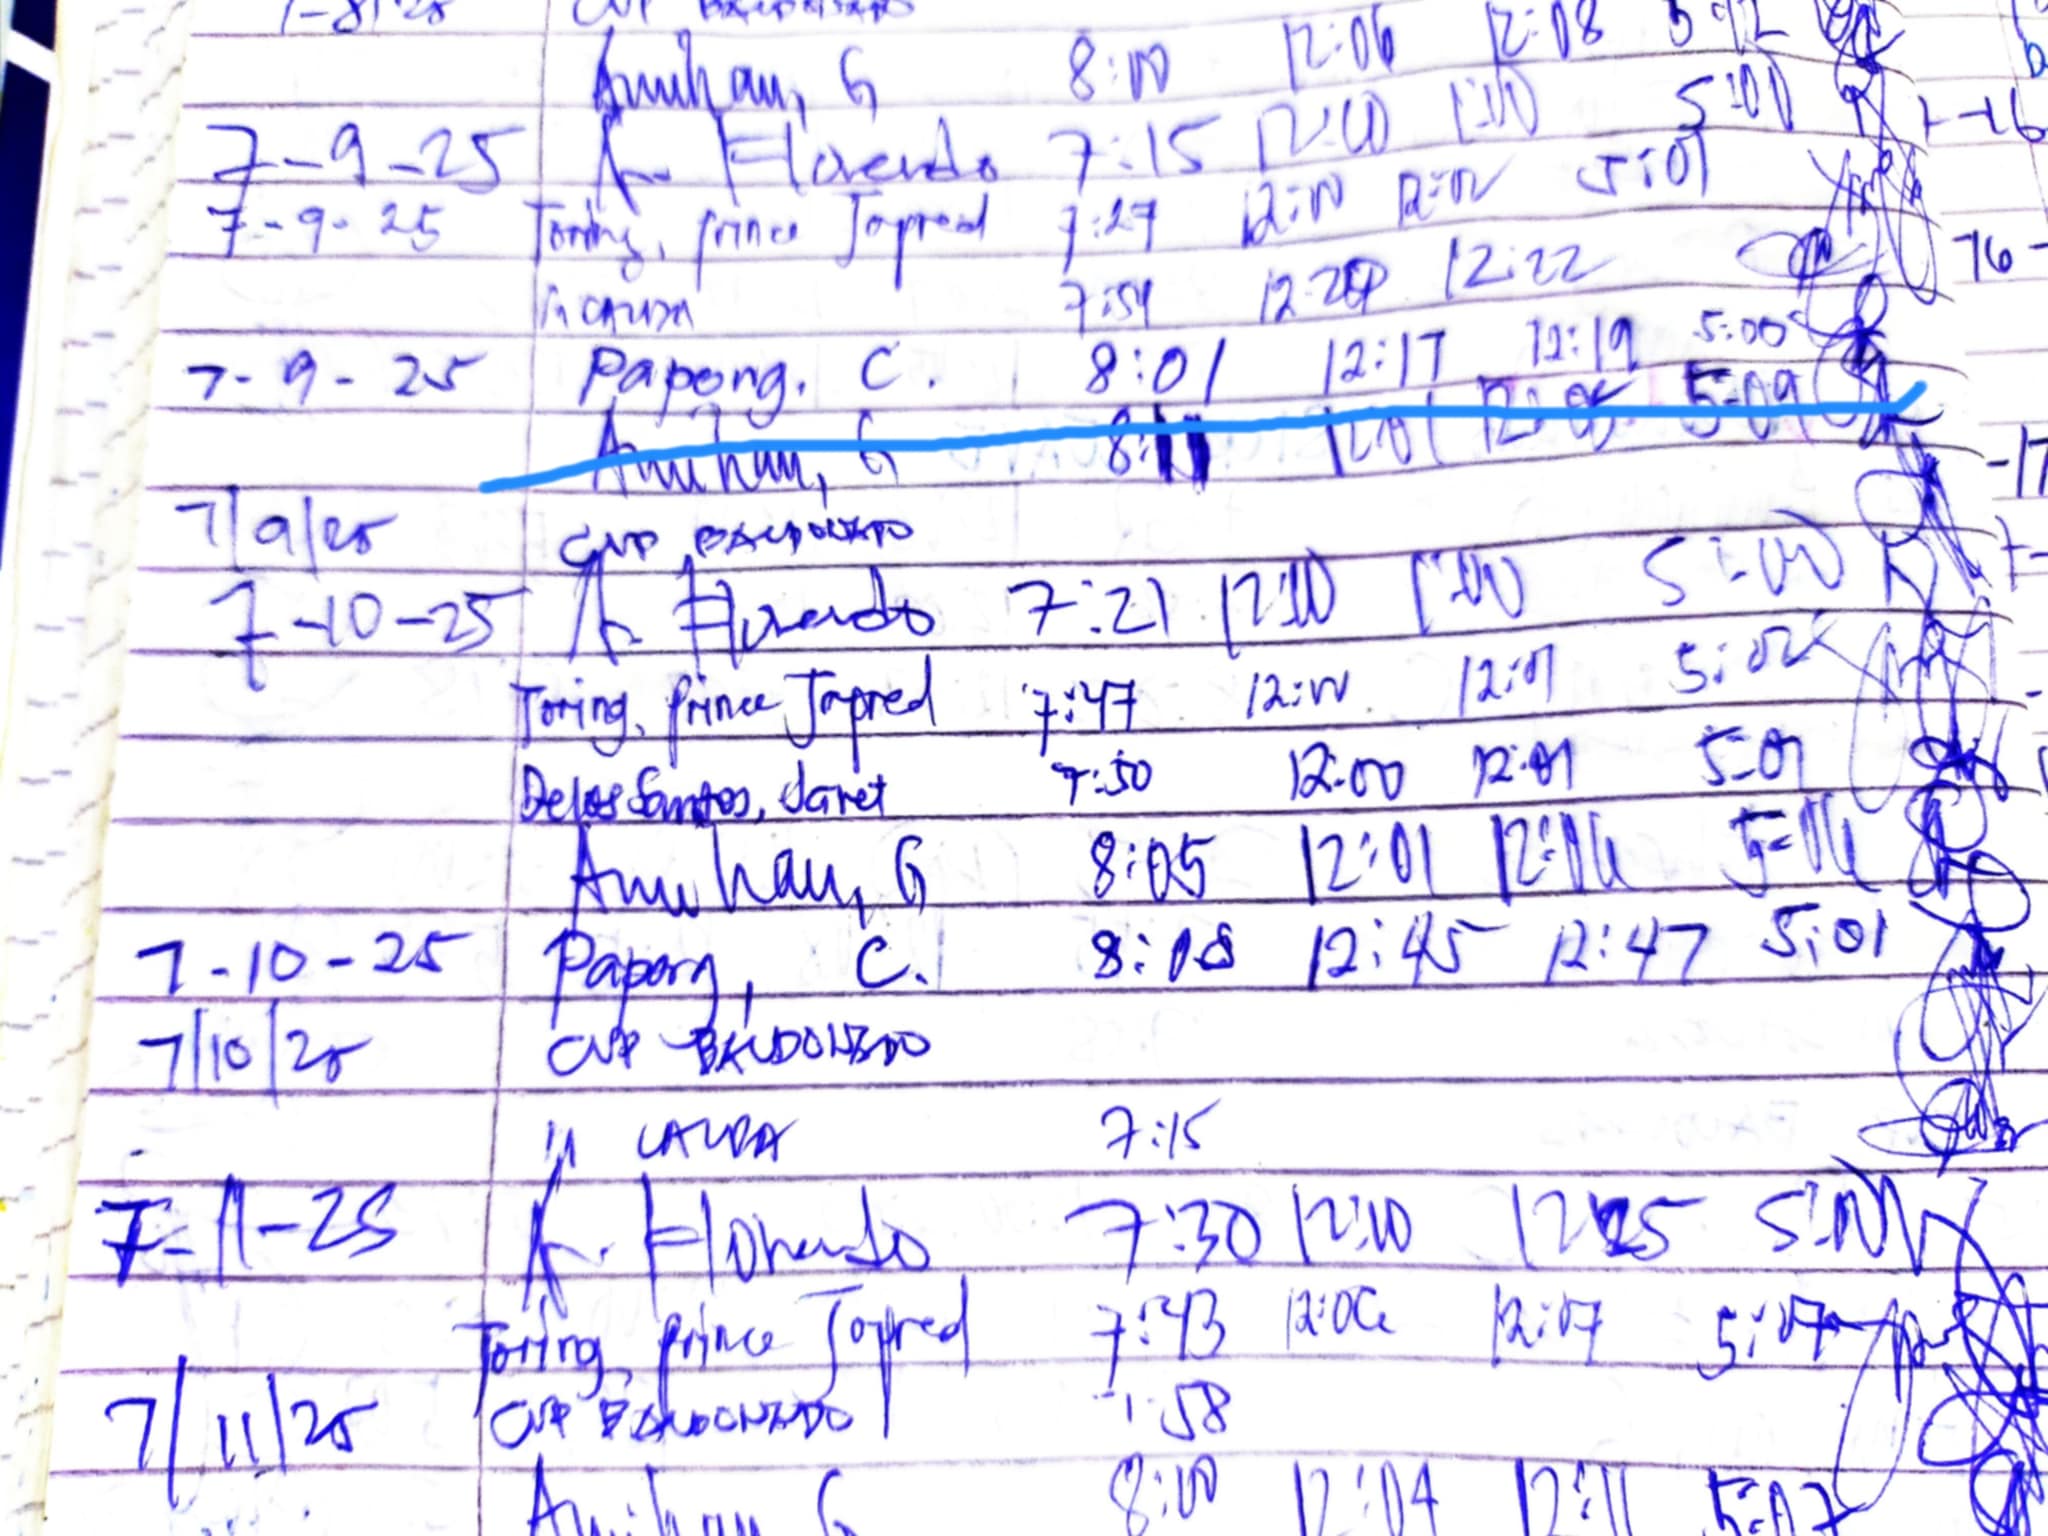 7-8/25 CVP BALDONADO
Amihan, G 8:00 12:06 12:08 5:12
7-9-25 A. Florendo 7:15 12:00 1:00 5:00
7-9-25 Toring, Prince Jopred 7:27 12:00 12:02 5:01
7:54 12:20 12:22
7-9-25 Papong, C. 8:01 12:17 12:19 5:00
Amihan, G 8:11 12:01 12:05 5:09
7/9/25 CVP BALDONADO
7-10-25 A. Florendo 7:21 12:00 1:00 5:00
Toring, Prince Jopred 7:47 12:00 12:01 5:02
Delos Santos, Jaret 7:50 12:00 12:01 5:01
Amihan, G 8:05 12:01 12:04 5:04
7-10-25 Papong, C. 8:08 12:45 12:47 5:01
7/10/25 CVP BALDONADO
7:15
7-11-25 A. Florendo 7:30 12:00 12:25 5:00
Toring, Prince Jopred 7:43 12:06 12:07 5:07
7/11/25 CVP BALDONADO 7:58
Amihan G 8:00 12:04 12:11 5:07